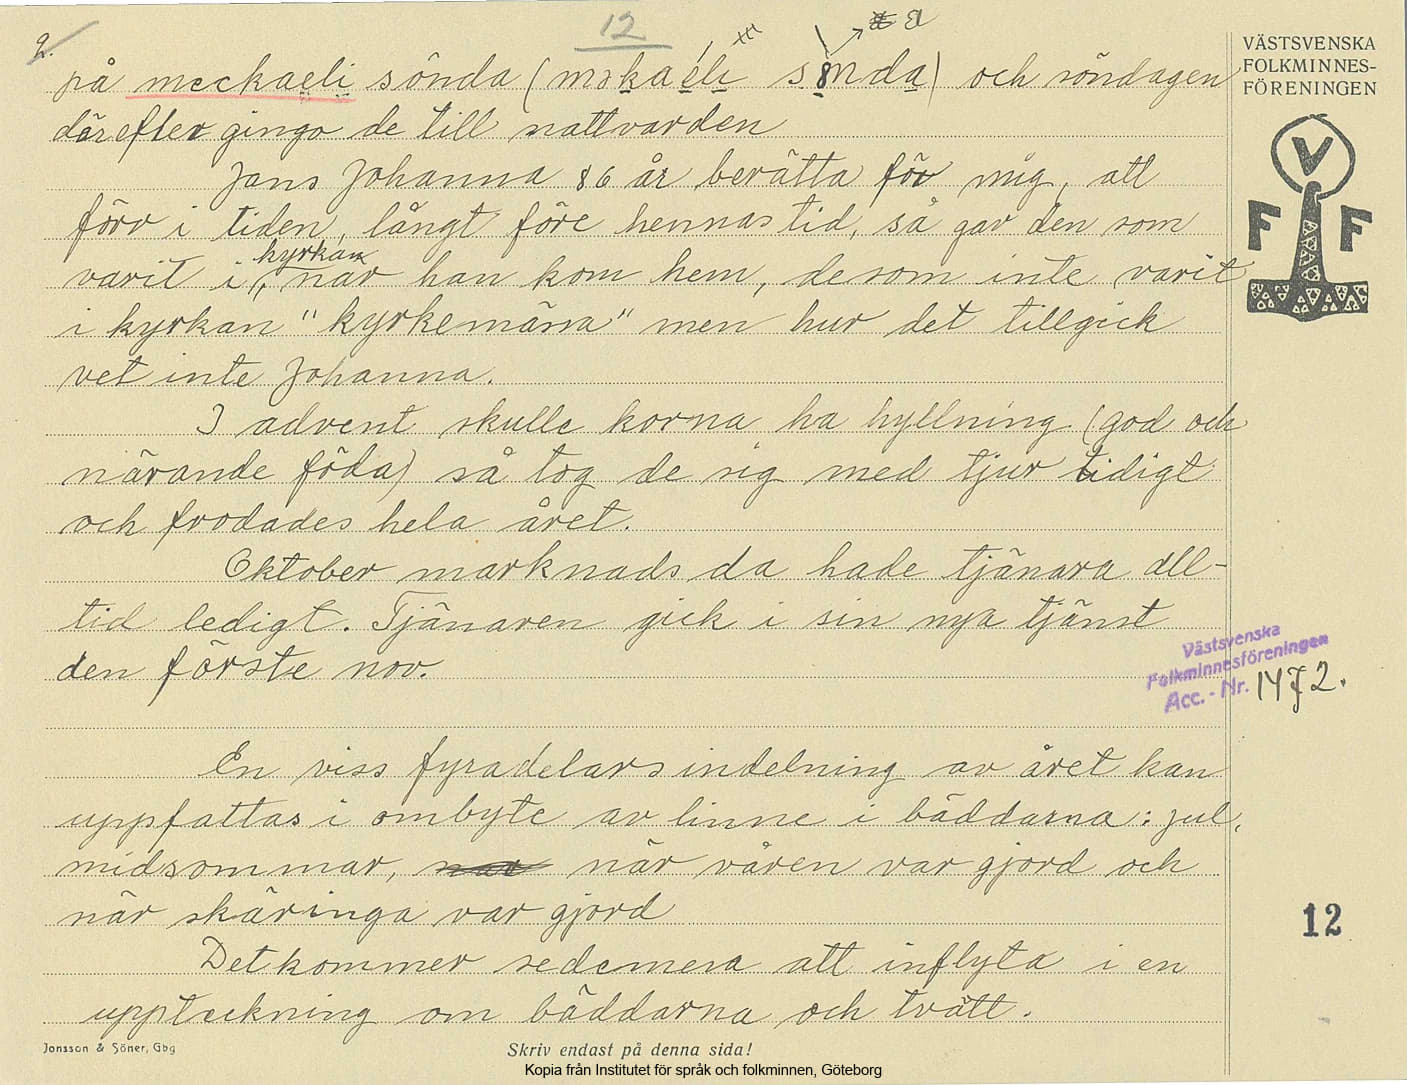 12
9.
på meckaeli sönda (mokaeli sönda) och söndagen
därefter gingo de till nattvarden
Jans Johanna 86 år berätta för mig, att
förr i tiden, långt före hennas tid, så gav den som
varit i kyrkan, när han kom hem, de som inte varit
i kyrkan "kyrkemäna" men hur det tillgick
vet inte Johanna.
I advent skulle korna ha hyllning (god och
närande föda) så tog de sig med tjur tidigt
och frodades hela året.
Oktober marknads da hade tjänara all-
tid ledigt. Tjänaren gick i sin nya tjänst
den förste nov.
En viss fyradelars indelning av året kan
uppfattas i ombyte av linne i bäddarna: jul,
midsommar, när våren var gjord och
när skäringa var gjord
Det kommer sedemera att inflyta i en
uppteckning om bäddarna och tvätt.
Jonsson & Söner, Gbg
Skriv endast på denna sida!
Kopia från Institutet för språk och folkminnen, Göteborg
VÄSTSVENSKA
FOLKMINNES-
FÖRENINGEN
V
F F
Västsvenska
Folkminnesföreningen
Acc.-Nr. 1472.
12